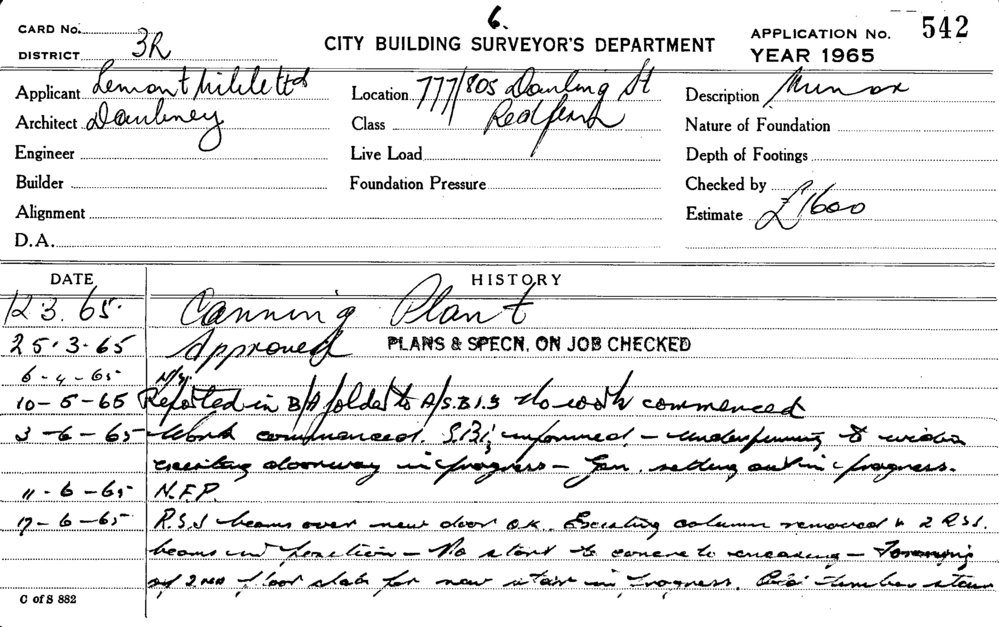 6.
CARD No.
DISTRICT 3R
CITY BUILDING SURVEYOR'S DEPARTMENT
APPLICATION No. 542
YEAR 1965
Applicant Ltd
Location 777/805 Dowling St
Description
Architect Daubney
Class Redfern
Nature of Foundation
Engineer
Live Load
Depth of Footings
Builder
Foundation Pressure
Checked by
Alignment
Estimate £1600
D.A.
DATE HISTORY
12.3.65. Canning Plant
25.3-65 Approved PLANS & SPECN. ON JOB CHECKED
6-4-65
10-5-65 Reported in B/A folder to A/S.B.I.S No work commenced
3-6-65 Work commenced. S.B.I. informed - underpinning to widen
existing doorway in progress - Gen. setting out in progress.
11-6-65 N.F.P.
17-6-65 R.S.J beams over new door O.K. Existing column removed & 2 RSJ.
beams in position - No start to concrete encasing - Forming
of 2nd floor slab for new stair in progress. timber stair
C of S 882